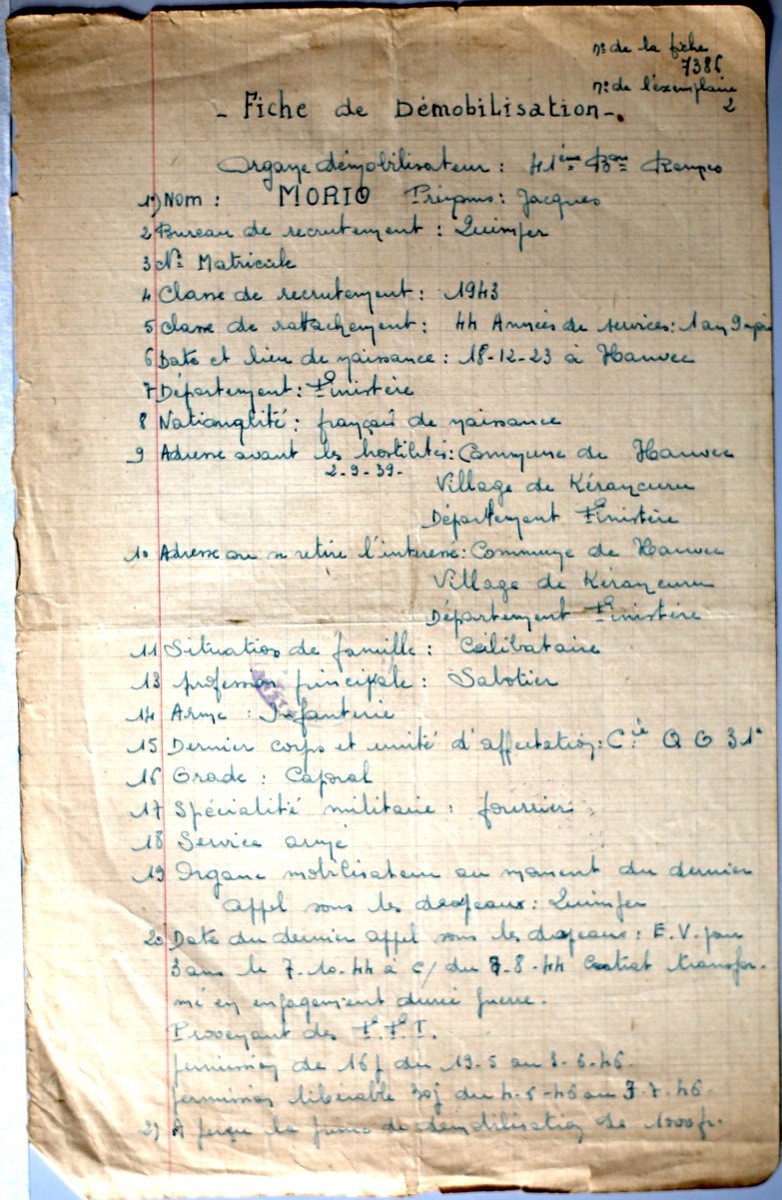 n° de la fiche
7386
n° de l'exemplaire
2
- Fiche de Démobilisation -
Organe démobilisateur : 41ème
1) Nom : MORIO Prénoms : Jacques
2 Bureau de recrutement : Quimper
3 N° Matricule
4 Classe de recrutement : 1943
5 Classe de rattachement : 44 Années de services : 1 an 9 mois
6 Date et lieu de naissance : 18-12-23 à Hanvec
7 Département : Finistère
8 Nationalité : français de naissance
9 Adresse avant les hostilités : Commune de Hanvec
2-9-39-
Village de
Département Finistère
10 Adresse ou se retire l'interessé : Commune de Hanvec
Village de
Département Finistère
11 Situation de famille : Célibataire
13 profession principale : Sabotier
14 Arme : Infanterie
15 Dernier corps et unité d'affectation : Cie Q G 31°
16 Grade : Caporal
17 Spécialité militaire : fourrier
18 Service armé
19 Organe mobilisateur au moment du dernier
appel sous les drapeaux : Quimper
20 Date du dernier appel sous les drapeaux : E.V. pour
3 ans le 7-10-44 à c/ du 8-44 Contrat transfor-
mé en engagement durée guerre.
Provenant des F.F.I.
permission de 16j du 19-5 au
permission libérable 30j du au 7-46
21 A perçu la prime de démobilisation de 1000 fr.